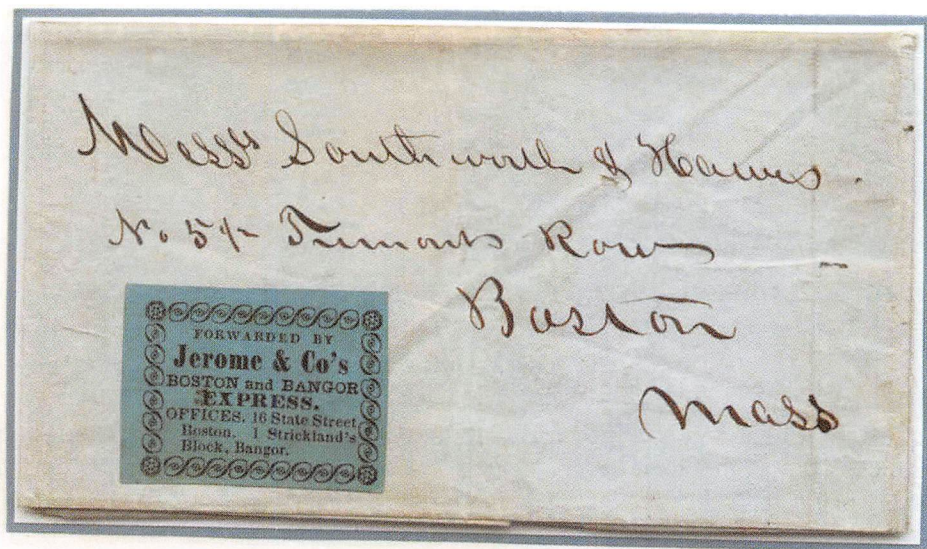 Messrs Southworth & Hawes.
No 5½ Tremont Row
Boston
Mass
FORWARDED BY
Jerome & Co's
BOSTON and BANGOR
EXPRESS.
OFFICES. 16 State Street
Boston. 1 Strickland's
Block, Bangor.